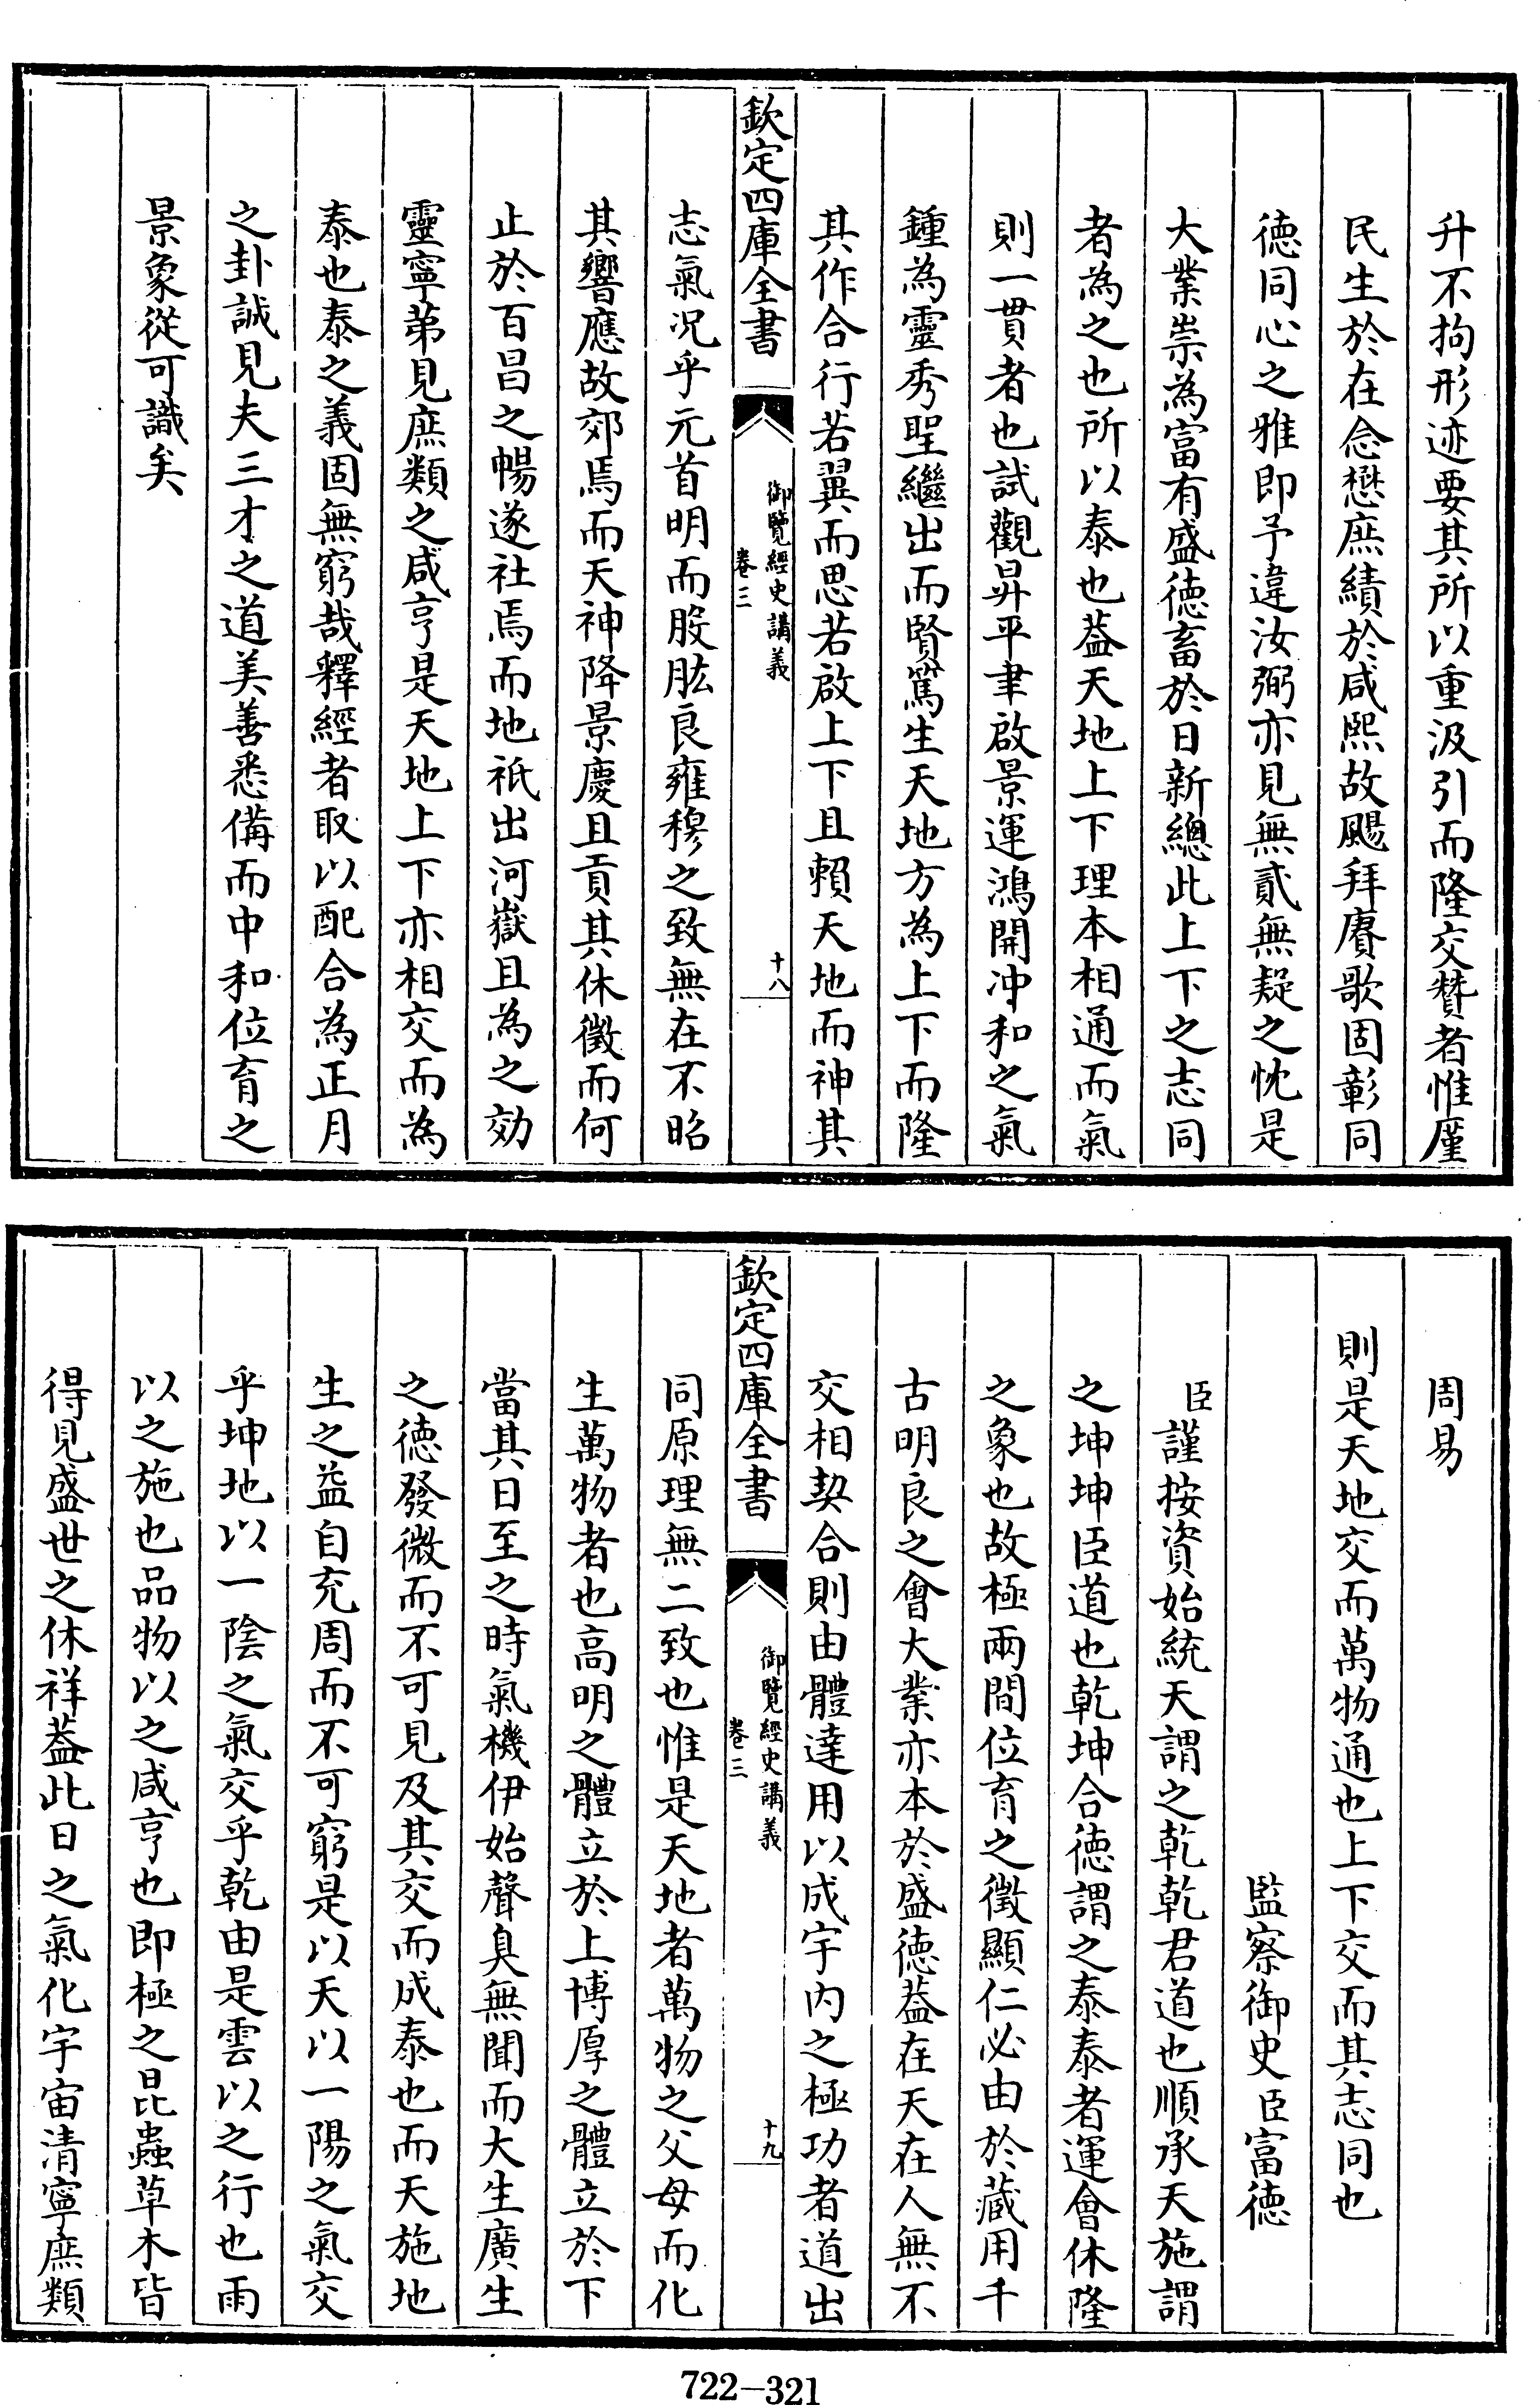 升不拘形迹要其所以重汲引而隆交贊者惟廑
民生於在念懋庶績於咸熙故颺拜賡歌固彰同
德同心之雅即予違汝弼亦見無貳無疑之忱是
大業崇為富有盛徳畜於日新總此上下之志同
者為之也所以泰也葢天地上下理本相通而氣
則一貫者也試觀昇平聿啟景運鴻開沖和之氣
鍾為靈秀聖繼出而賢篤生天地方為上下而隆
其作合行若翼而思若啟上下且賴天地而神其
欽定四庫全書
御覽經史講義
卷三
十八
志氣況乎元首明而股肱良雍穆之致無在不昭
其響應故郊焉而天神降景慶且貢其休徵而何
止於百昌之暢遂社焉而地祇出河嶽且為之効
靈寧第見庶類之咸亨是天地上下亦相交而為
泰也泰之義固無窮哉釋經者取以配合為正月
之卦誠見夫三才之道美善悉備而中和位育之
景象從可識矣
周易
則是天地交而萬物通也上下交而其志同也
監察御史臣富徳
臣謹按資始統天謂之乾乾君道也順承天施謂
之坤坤臣道也乾坤合徳謂之泰泰者運會休隆
之象也故極兩間位育之徵顯仁必由於藏用千
古明良之會大業亦本於盛徳葢在天在人無不
交相契合則由體達用以成宇內之極功者道出
欽定四庫全書
御覽經史講義
卷三
十九
同原理無二致也惟是天地者萬物之父母而化
生萬物者也高明之體立於上博厚之體立於下
當其日至之時氣機伊始聲臭無聞而大生廣生
之徳發微而不可見及其交而成泰也而天施地
生之益自充周而不可窮是以天以一陽之氣交
乎坤地以一陰之氣交乎乾由是雲以之行也雨
以之施也品物以之咸亨也即極之昆蟲草木皆
得見盛世之休祥葢此日之氣化宇宙清寧庶類
722—321